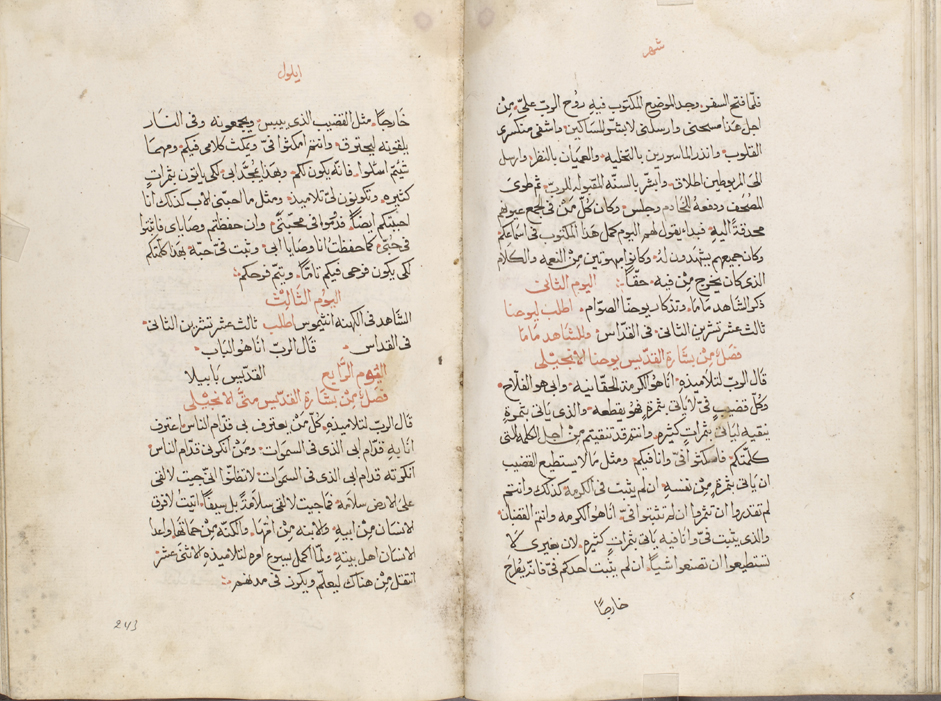 شهر
فلمّا فتح السفر وجد الموضع المكتوب فيه روُح الربّ عليّ مِنْ
اجل هَذا مسحني وارسلني لابشّر المسَاكين واشفي منكسري
القلوب وانذر الماسورين بالتخليه والعميَان بالنظر وارسل
المربوطين اطلاق وابشّر بالسنّه المقبوله للربّ ثم طوىَ
المصْحَف ودفعهُ للخادم وجلس وكان كلّ مَنْ في المجمع عيونهم
محدقةً اليهِ فبداَ يقول لهم اليوم كمل هَذا المكتوب في اسَماعكم
وكان جميعهم يشهدون لهُ وكانوا مبهوتين مِنْ النعمه والكلام
الذي كان يخرج مِنْ فيه حقّاً اليوم الثاني
ذكر الشاهد مَامَا وتذكار يوحنا الصوّام اطلب ليوحنا
ثالث عشر تشرين الثاني في القدّاس وللشاهد مَامَا
فصَل مِنْ بشَارة القدّيس يوحنا الانجيْلي
قَال الربّ لتلاميذهِ انَا هوُ الكرمة الحقانيه وابي هو الفلاّح
وكلّ قضيبٍ فيّ لاَ ياتي بثمرةٍ فهوُ يقطعه والذي يَاتي بثمرةٍ
ينقيه ليَاتي بثمراتٍ كثيره وانتم قد تنقيتم مِنْ اجل الكلمه التي
كلمتكم فامكثوا فيّ وانا فيكم ومثل مَا لا يستطيع القضيب
ان يَاتي بثمرةٍ مِنْ نفسهِ ان لم يثبت في الكرمه كذلك وانتم
لم تقدروا ان تثمروا ان لم تثبتوا فيّ انَا هوُ الكرمه وانتم القضبان
والذي يثبت فيّ وانا فيه يَاتي بثمراتٍ كثيره لان بغيري لاَ
تستطيعوا ان تصنعوا شياً ان لم يثبت احدكم فيّ فانه يُطرح
خارجًا
ايلول
خَارجاً مثل القضيب الذي ييبس ويجمعونه وفي النَار
يلقونه ليحترق وانتم امكثوا فيّ ويمكث كلامي فيكم ومهمَا
شيتم اسلوا فانه يكون لكم وبهَذا يمجَّد ابي لكي ياتون بثمراتٍ
كثيره وتكونون لي تلاميذ ومثل مَا احبني الاب كذلك انَا
احببتكم ايضاً فدُموا في محبّتي وان حفظتم وصَاياي فاثبتوا
في حُبّي كمَا حفظتُ انَا وصَايَا ابي وثبت في حبّه بهَذا كلمتكم
لكي يكون فرحي فيكم تامّاً ويتم فرحكم
اليوُم الثَالِثْ
الشاهد في الكهنه انثيموس اطلب ثالث عشر تشرين الثاني
في القداس قَال الربّ انَا هو البَاب
اليوُم الرَّابع القدّيس بَابيلا
فصَل مِنْ بشَارة القدّيس متىّ الانجيْلي
قَال الربّ لتلاميذهِ كلّ مَنْ يعترف بي قدّام الناس اعترف
انَا بهِ قدّام ابي الذي في السموَات ومَنْ انكرني قدّام الناس
انكرته قدام ابي الذي في السموَات لاتظنّوا انّي جيت لالقي
علىَ الارض سلامه فمَا جيت لالقي سلاَمةً بل سيفاً اتيتُ لافرق
الانسَان مِنْ ابيهِ والابنه مِنْ امّهَا والكنّه مِنْ حمَاتهَا واعدَا
الانسَان اهل بيتهِ ولمّا اكمل يسوع امره لتلاميذهِ الاثني عشر
انتقل مِنْ هنَاك ليعلّم ويكون في مدنهم
243